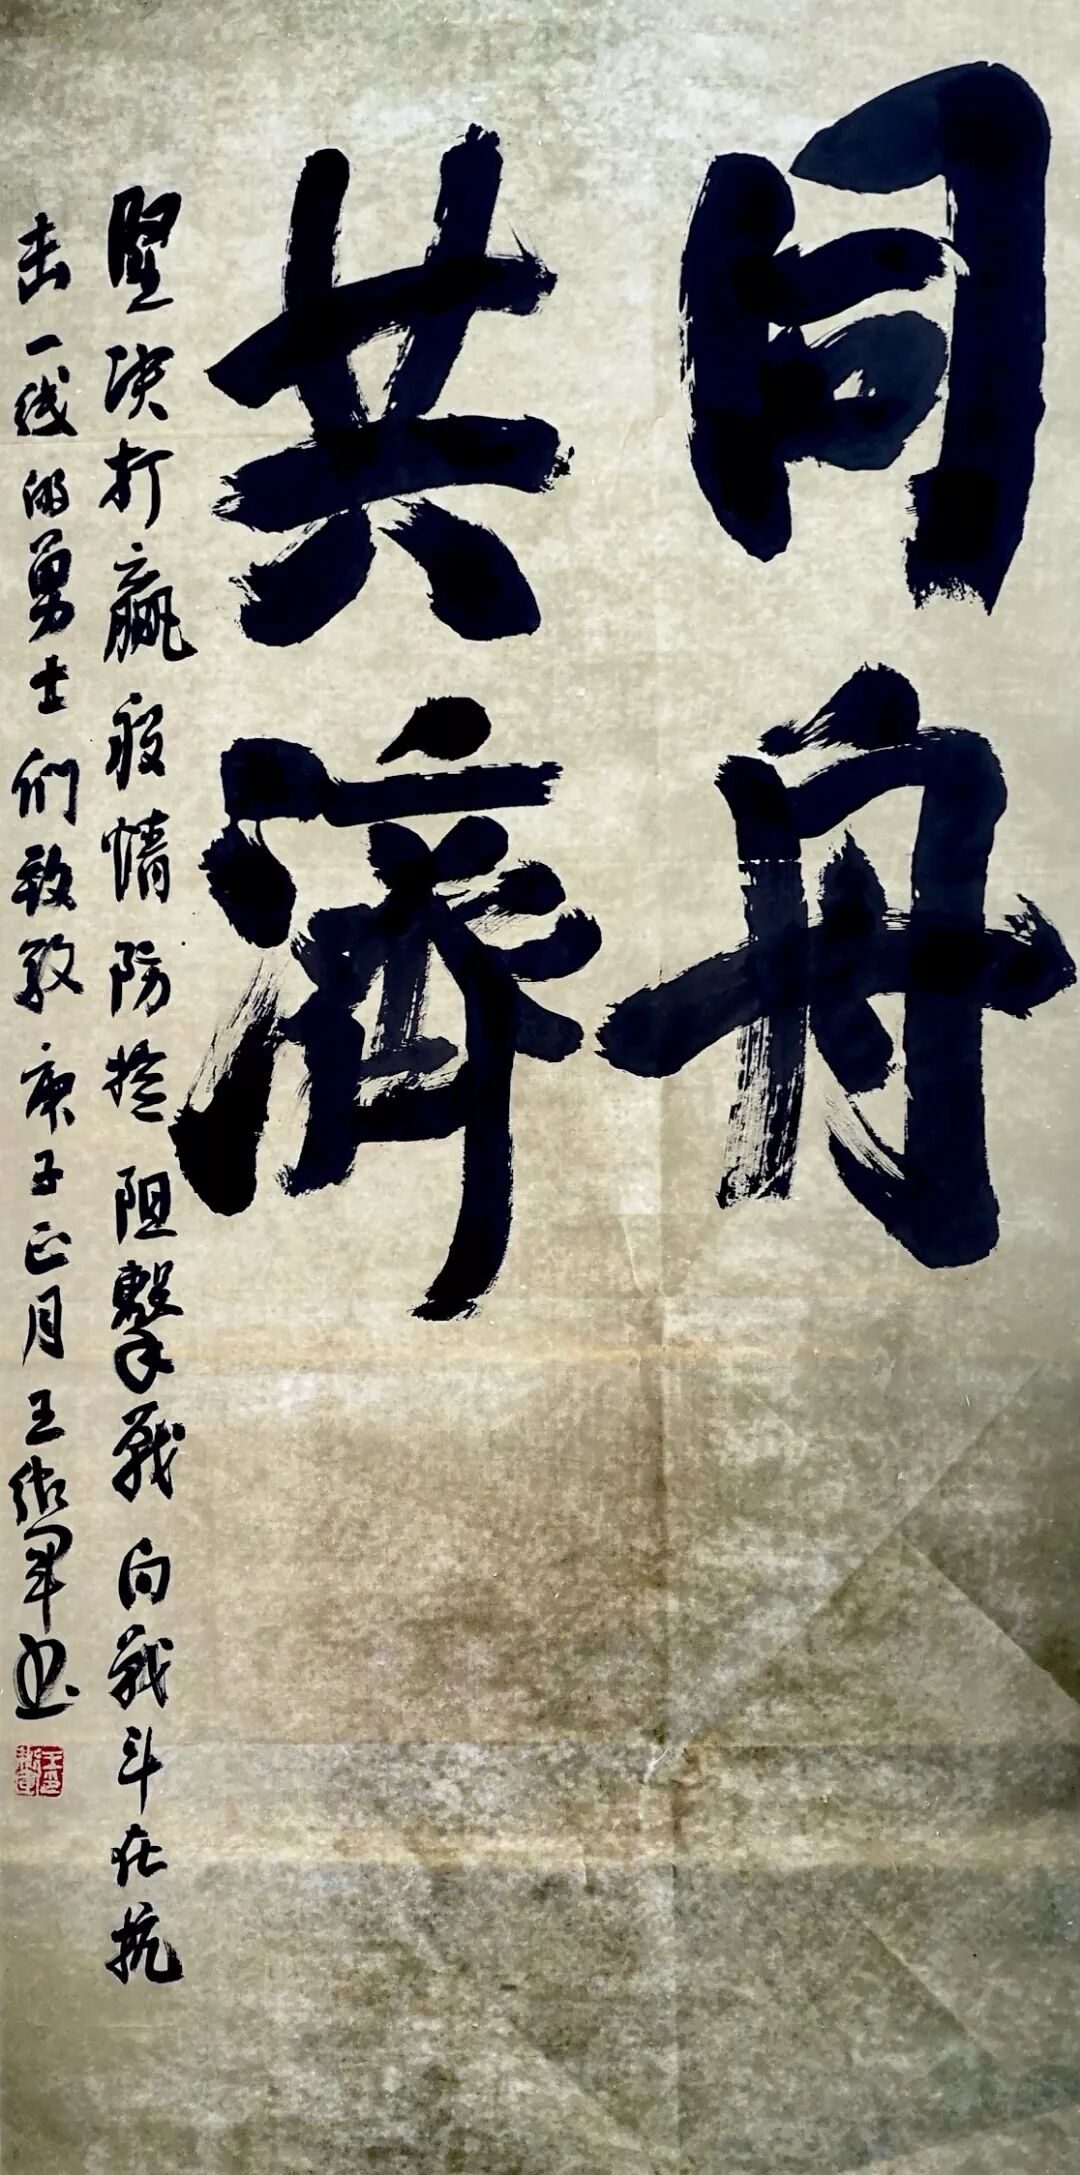 同舟
共濟
堅决打贏疫情防控阻擊戰向戰斗在抗
击一线的勇士们致敬庚子正月王